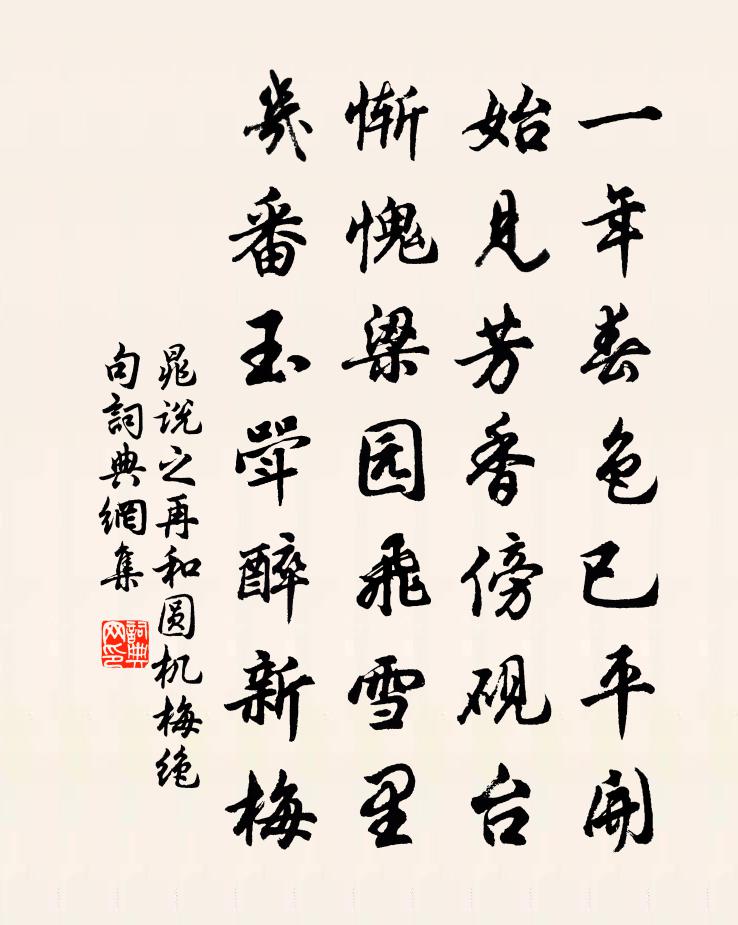 一年春色已平開
始见芳香傍砚台
惭愧梁园飛雪里
幾番玉斝醉新梅
晁说之再和圆机梅绝
句詞典網集
詞典网印